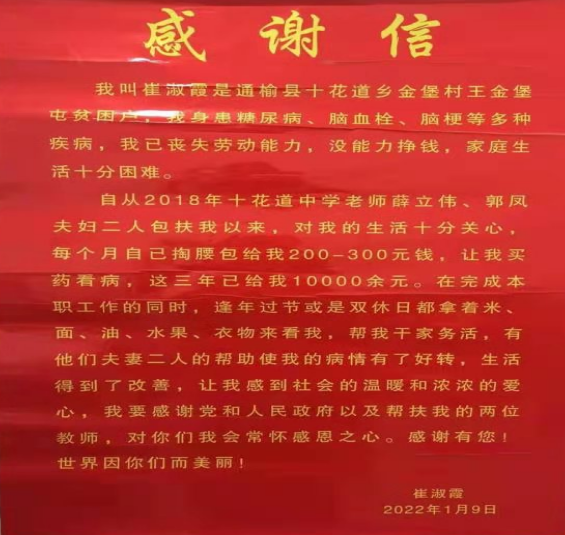 感谢信
我叫崔淑霞是通榆县十花道乡金堡村王金堡
屯贫困户，我身患糖尿病、脑血栓、脑梗等多种
疾病，我已丧失劳动能力，没能力挣钱，家庭生
活十分困难。
自从2018年十花道中学老师薛立伟、郭凤
夫妇二人包扶我以来，对我的生活十分关心，
每个月自己掏腰包给我200-300元钱，让我买
药看病，这三年已给我10000余元。在完成本
职工作的同时，逢年过节或是双休日都拿着米、
面、油、水果、衣物来看我，帮我干家务活，有
他们夫妻二人的帮助使我的病情有了好转，生活
得到了改善，让我感到社会的温暖和浓浓的爱
心，我要感谢党和人民政府以及帮扶我的两位
教师，对你们我会常怀感恩之心。感谢有您！
世界因你们而美丽！
崔淑霞
2022年1月9日